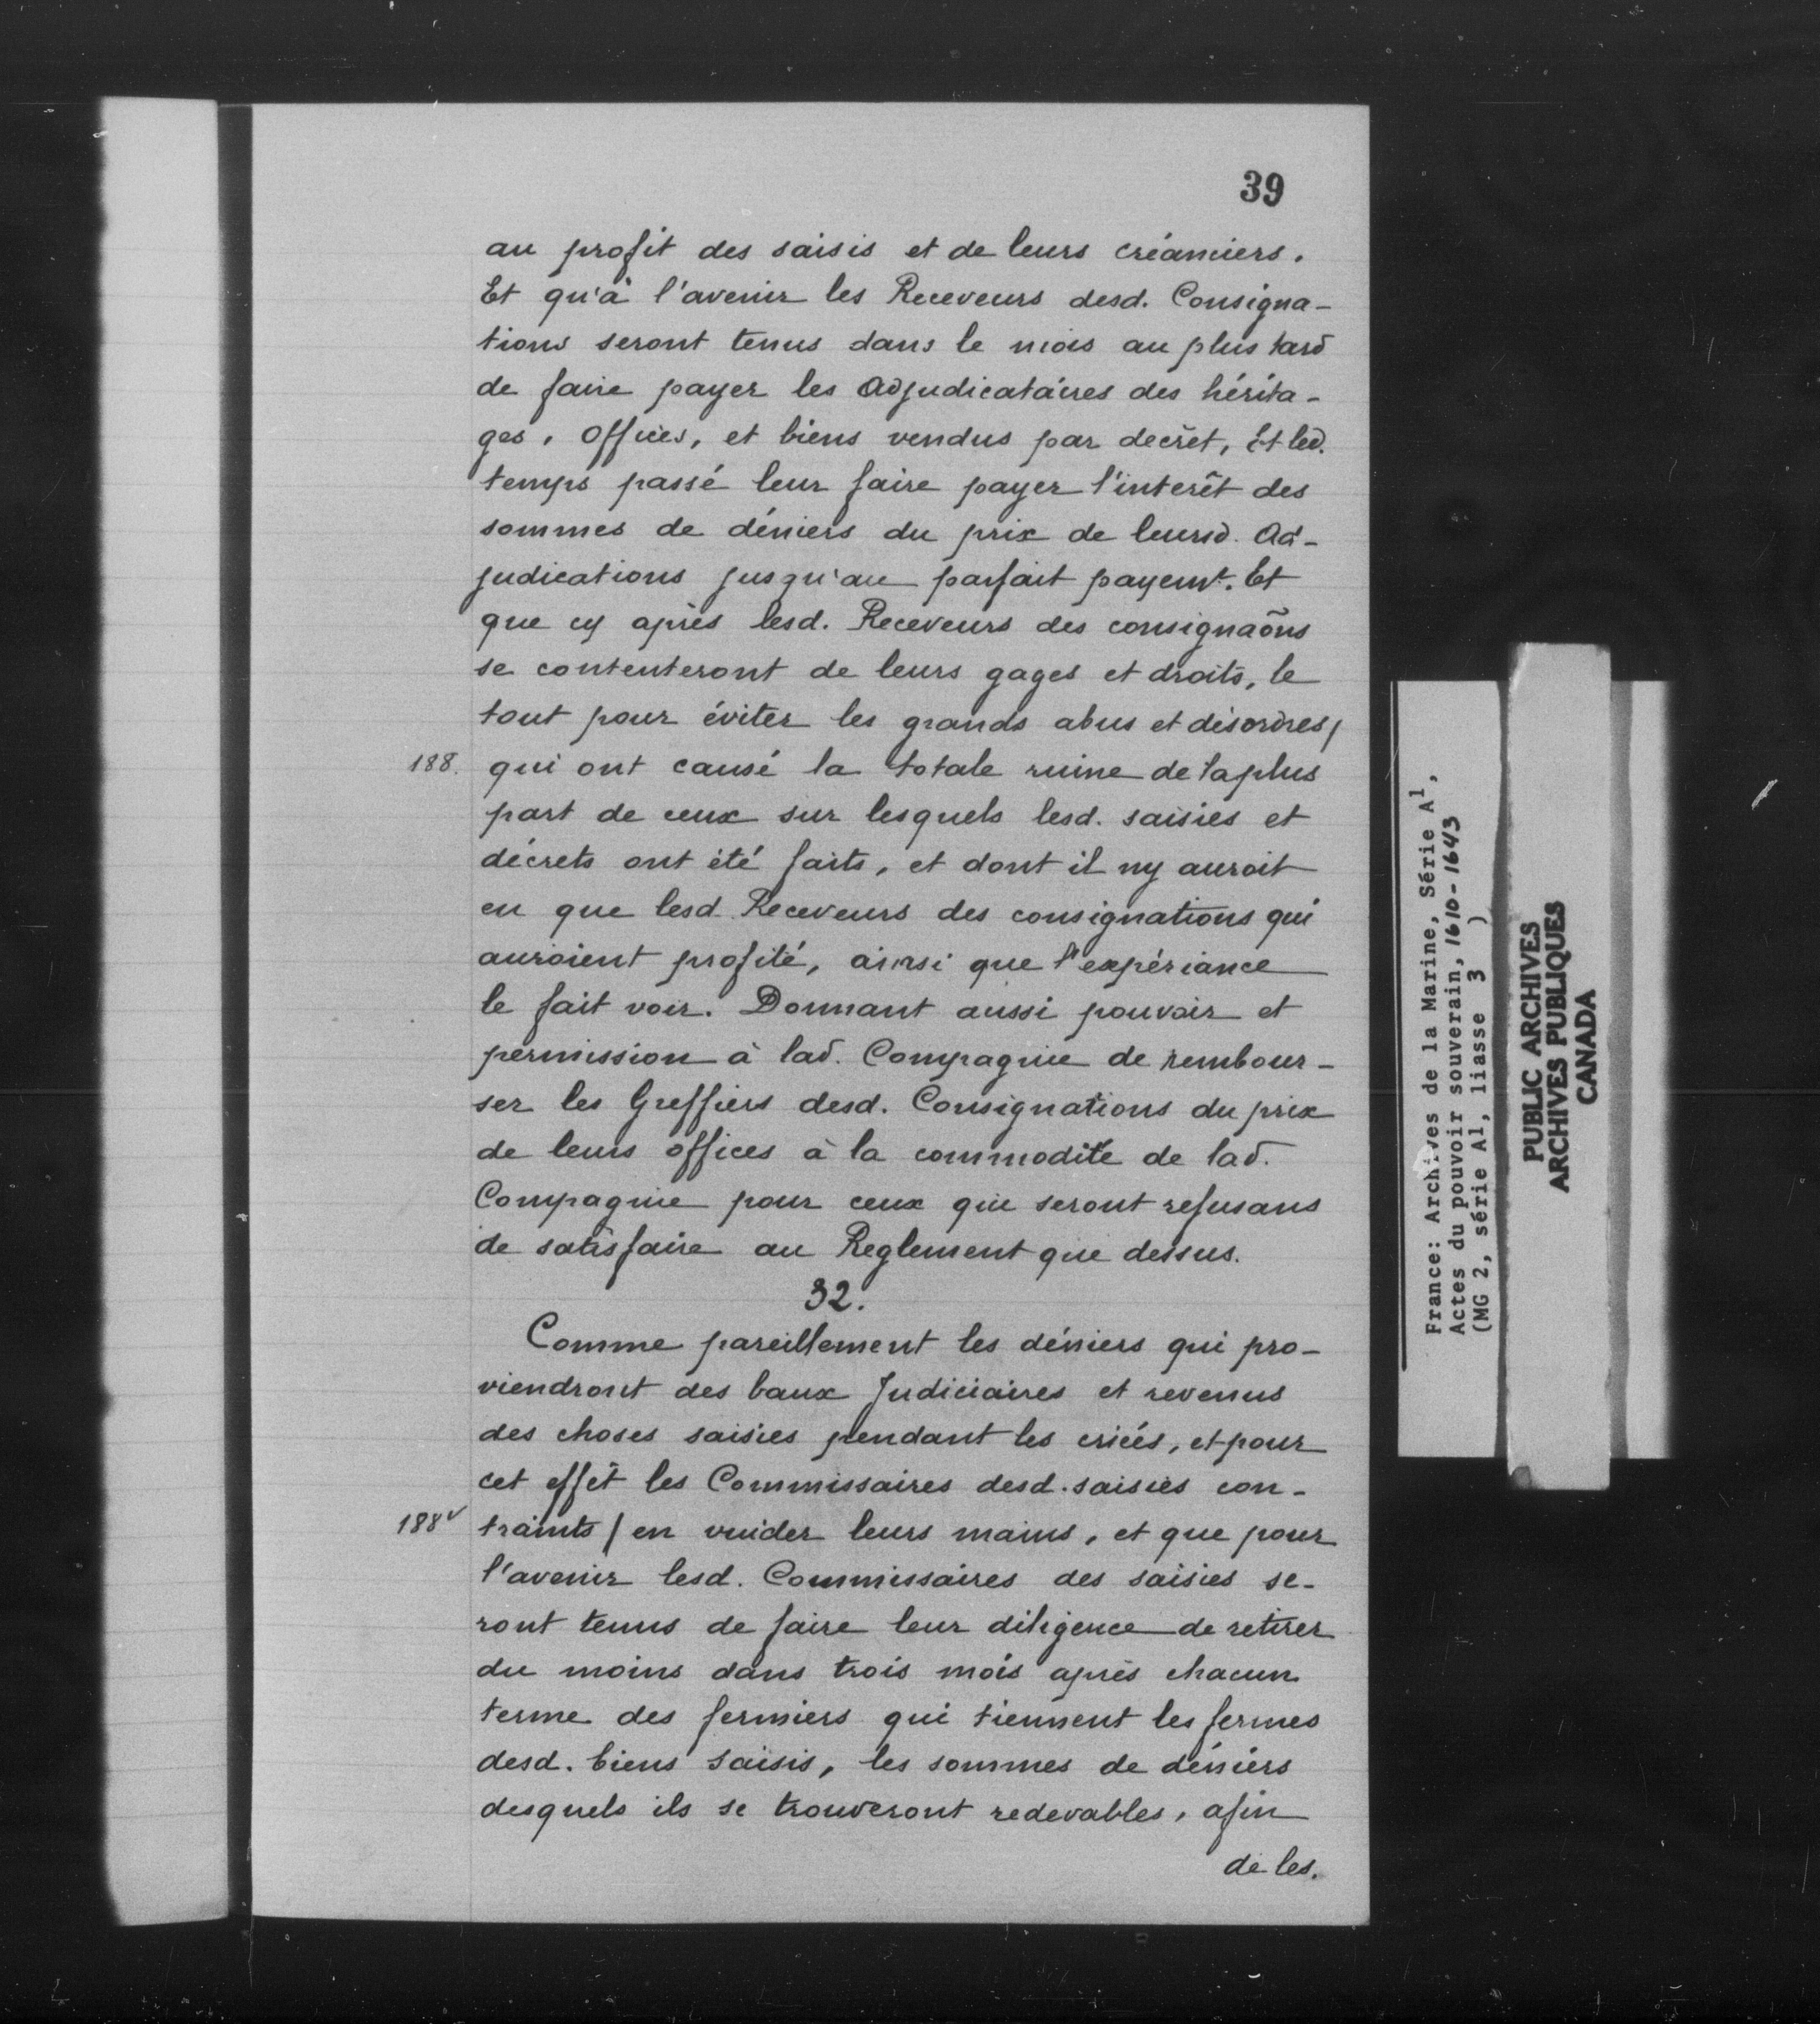 39
au profit des saisis et de leurs créanciers.
Et qu'à l'avenir les Receveurs desd. Consigna-
tions seront tenus dans le mois au plus tard
de faire payer les Adjudicataires des hérita-
ges, Offices, et biens vendus par decret, Et led.
temps passé leur faire payer l'interêt des
sommes de déniers du prix de leursd. Ad-
judications jusqu'au parfait payemt. Et
que cy après lesd. Receveurs des consignaõns
se contenteront de leurs gages et droits, le
tout pour éviter les grands abus et désordres/
188. qui ont causé la totale ruine de la plus
part de ceux sur lesquels lesd. saisies et
décrets ont été faits, et dont il ny auroit
eu que lesd. Receveurs des consignations qui
auroient profité, ainsi que l'expériance
le fait voir. Donnant aussi pouvoir et
permission à lad. Compagnie de rembour-
ser les Greffiers desd. Consignations du prix
de leurs offices à la commodité de lad.
Compagnie pour ceux qui seront refusans
de satisfaire au Reglement que dessus.
32.
Comme pareillement les déniers qui pro-
viendront des baux Judiciaires et revenus
des choses saisies pendant les criées, et pour
cet effêt les Commissaires desd. saisies con-
188v traints / en vuider leurs mains, et que pour
l'avenir lesd. Commissaires des saisies se-
ront tenus de faire leur diligence de retirer
du moins dans trois mois après chacun
terme des fermiers qui tiennent les fermes
desd. biens saisis, les sommes de déniers
desquels ils se trouveront redevables, afin
de les.
France: Archives de la Marine, Série A1,
Actes du pouvoir souverain, 1610-1643
(MG 2, série A1, liasse 3 )
PUBLIC ARCHIVES
ARCHIVES PUBLIQUES
CANADA